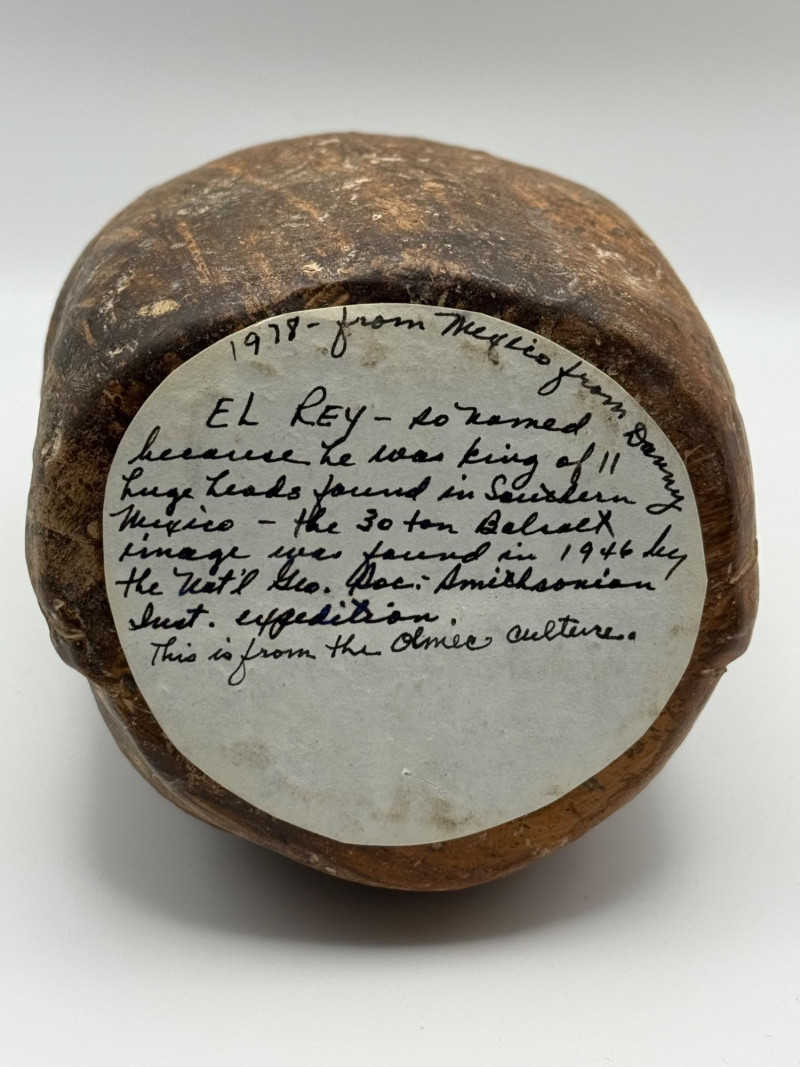 1978 - from Mexico from Danny
EL REY - so named
because he was king of 11
huge heads found in Southern
Mexico - the 30 ton Balsalt
image was found in 1946 by
the Nat'l Geo. Soc. - Smithsonian
Inst. expedition.
This is from the Olmec culture.